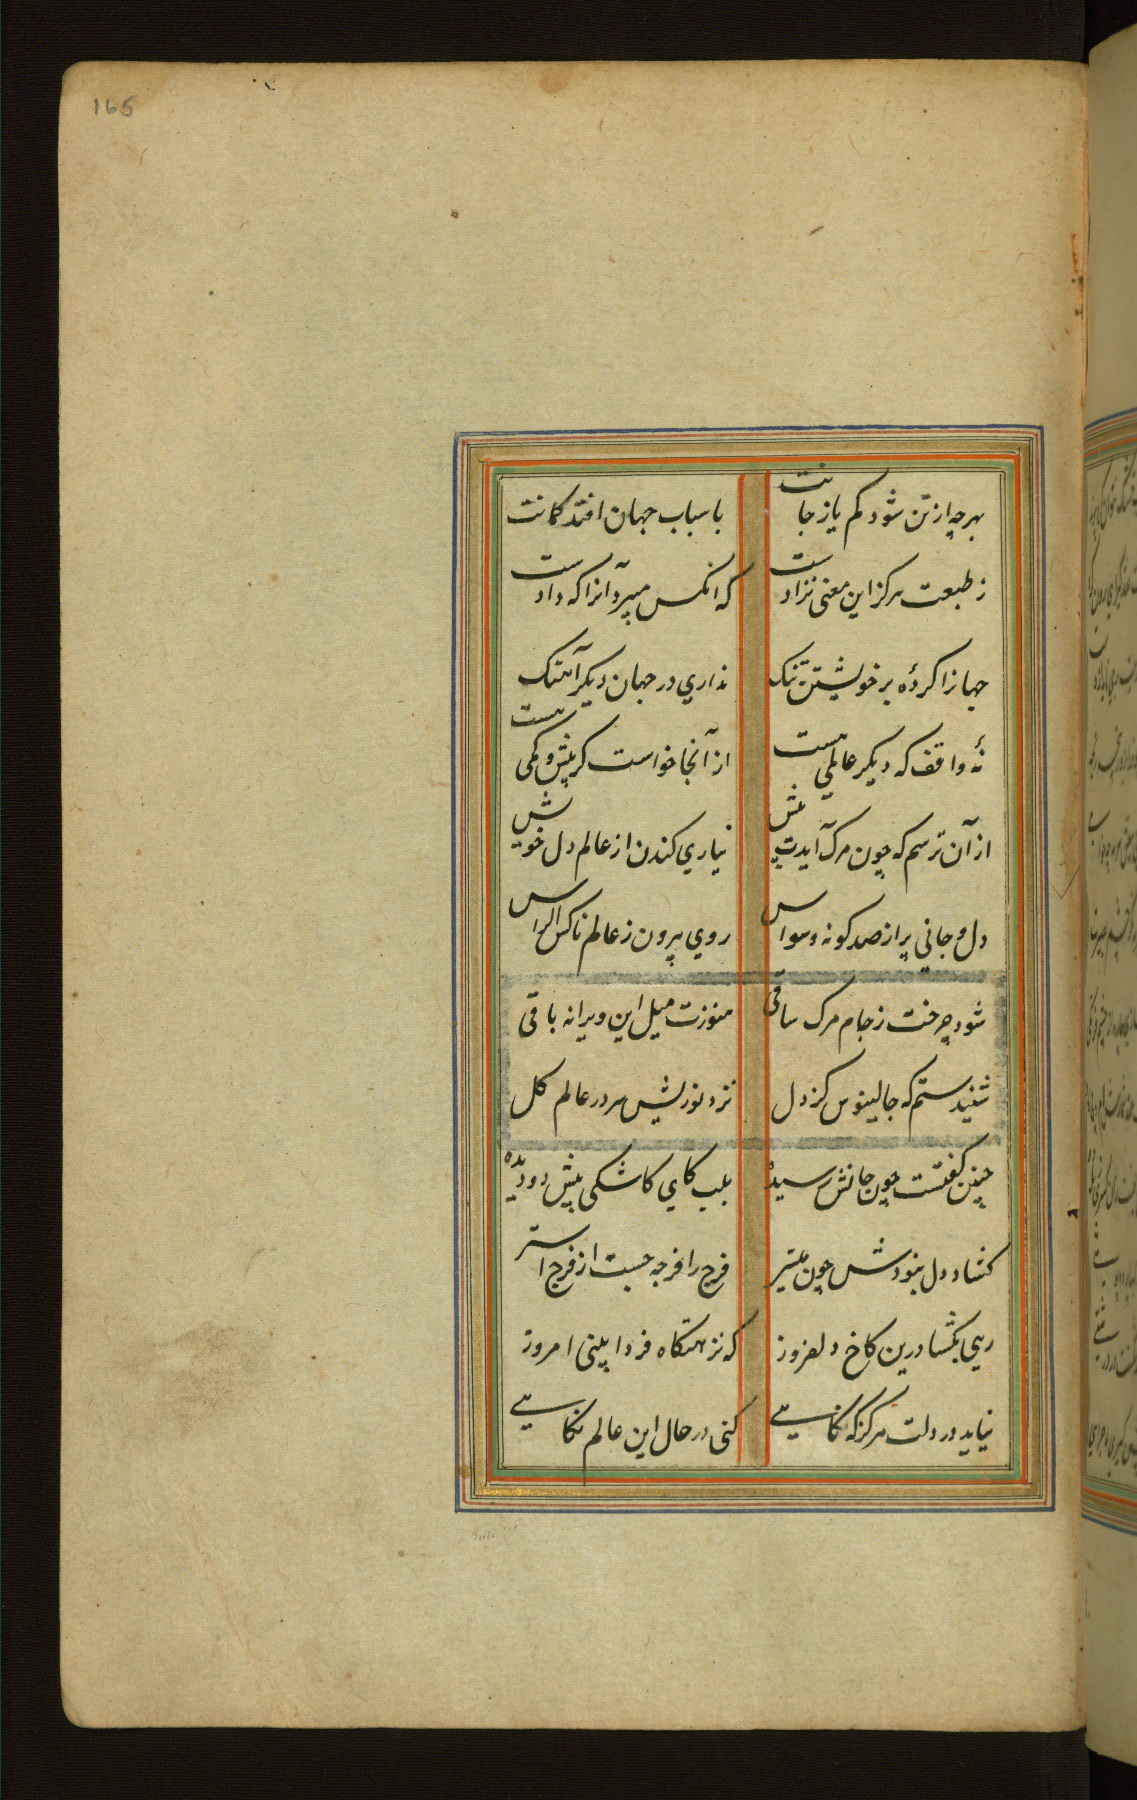 165
بهرچه از تن شود کم یا ز جانت
باسباب جهان افتد کمانت
ز طبعت هرکز این معنی نزادست
که انکس میبرد آنرا که دادست
جهانرا کردهٔ بر خویشتن تنک
نداری در جهان دیکر آهنک
نهٔ واقف که دیکر عالمی هست
از آنجا خواست کر بیش و کمی هست
از آن ترسم که چون مرک آیدت پیش
نیاری کندن از عالم دل خویش
دل و جانی پر از صد کونه وسواس
روی بیرون ز عالم ناکس الراس
شود چرخت ز جام مرک ساقی
هنوزت میل این ویرانه باقی
شنیدستم که جالینوس کز دل
نزد نوریش سر در عالم کل
چنین کفتست چون جانش رسیده
بلب کای کاشکی پیش دو دیده
کشاد دل بنودش چون میسر
فرج را فرجه جست از فرج استر
رهی بکشا درین کاخ دلفروز
که نزهتکاه فردا بینی امروز
نیاید در دلت هرکز که کاهی
کنی در حال این عالم نکاهی